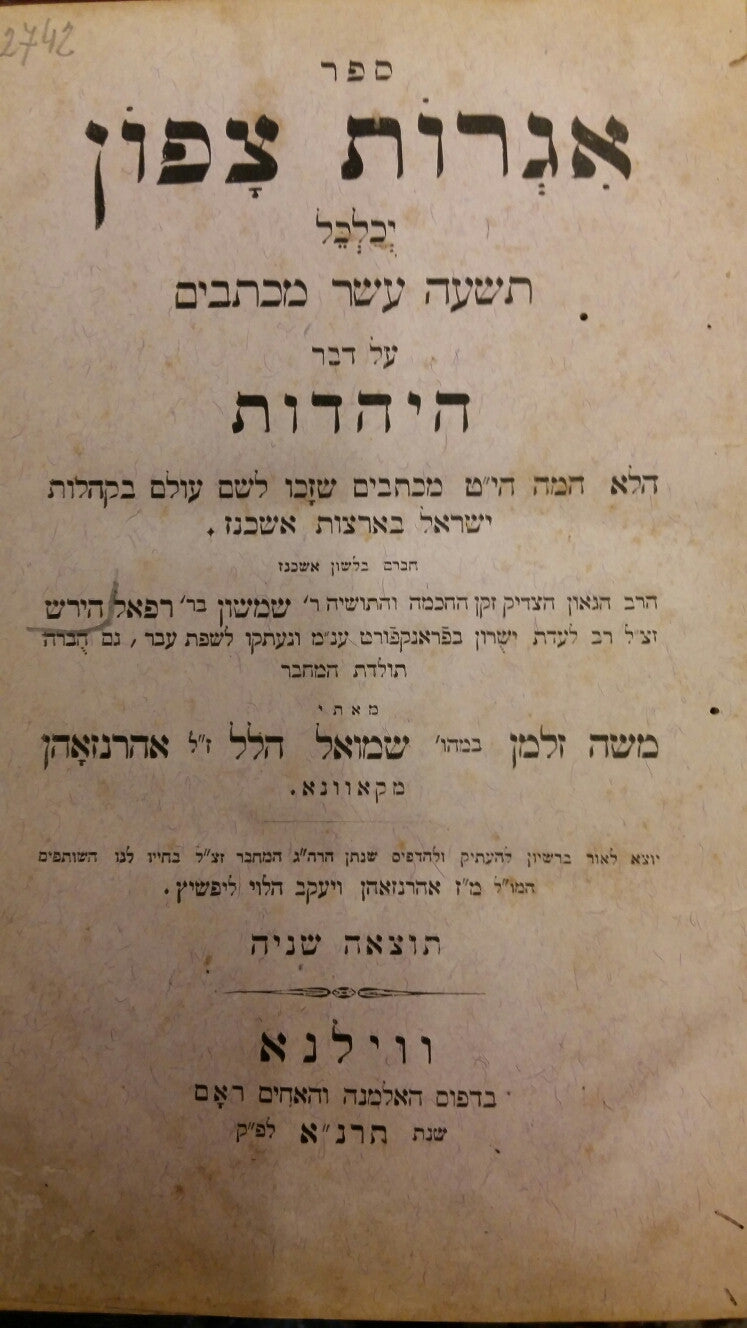 2742
ספר
אִגְרוֹת צָפוֹן
יְכַלְכֵּל
תשעה עשר מכתבים
על דבר
היהדות
הלא המה הי״ט מכתבים שזָכו לשם עולם בקהלות
ישראל בארצות אשכנז.
חברם בלשון אשכנז
הרב הגאון הצדיק זקן החכמה והתושיה ר׳ שמשון בר׳ רפאל הירש
זצ״ל רב לעדת ישֻרון בפֿראנקפֿורט ענ״מ ונעתקו לשפת עבר, גם חֻברה
תולדת המחבר
מאתי
משה זלמן במהו׳ שמואל הלל ז״ל אהרנזאָהן
מקאוונא.
יוצא לאור ברשיון להעתיק ולהדפיס שנתן הרה״ג המחבר זצ״ל בחייו לנו השותפים
המו״ל מ״ז אהרנזאהן ויעקב הלוי ליפשיץ.
תוצאה שניה
ווילנא
בדפוס האלמנה והאחים ראָם
שנת תרנ״א לפ״ק